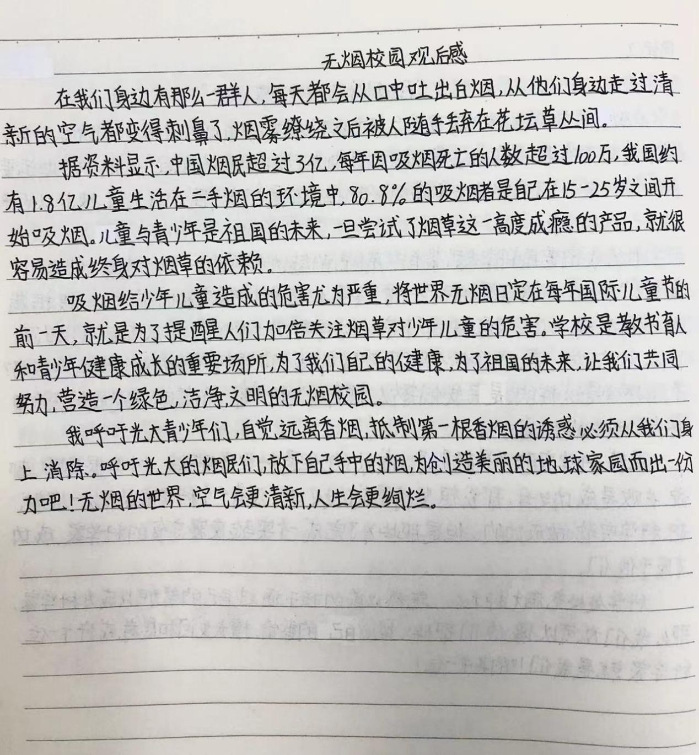 无烟校园观后感
在我们身边有那么一群人,每天都会从口中吐出白烟,从他们身边走过清
新的空气都变得刺鼻了,烟雾缭绕之后被人随手丢弃在花坛草丛间。
据资料显示,中国烟民超过3亿,每年因吸烟死亡的人数超过100万,我国约
有1.8亿儿童生活在二手烟的环境中,80.8%的吸烟者是自己在15-25岁之间开
始吸烟。儿童与青少年是祖国的未来,一旦尝试了烟草这一高度成瘾的产品,就很
容易造成终身对烟草的依赖。
吸烟给少年儿童造成的危害尤为严重,将世界无烟日定在每年国际儿童节的
前一天,就是为了提醒人们加倍关注烟草对少年儿童的危害。学校是教书育人
和青少年健康成长的重要场所,为了我们自己的健康,为了祖国的未来,让我们共同
努力,营造一个绿色,洁净,文明的无烟校园。
我呼吁光大青少年们,自觉远离香烟,抵制第一根香烟的诱惑必须从我们身
上消除。呼吁光大的烟民们,放下自己手中的烟,为创造美丽的地球家园而出一份
力吧!无烟的世界,空气会更清新,人生会更绚烂。